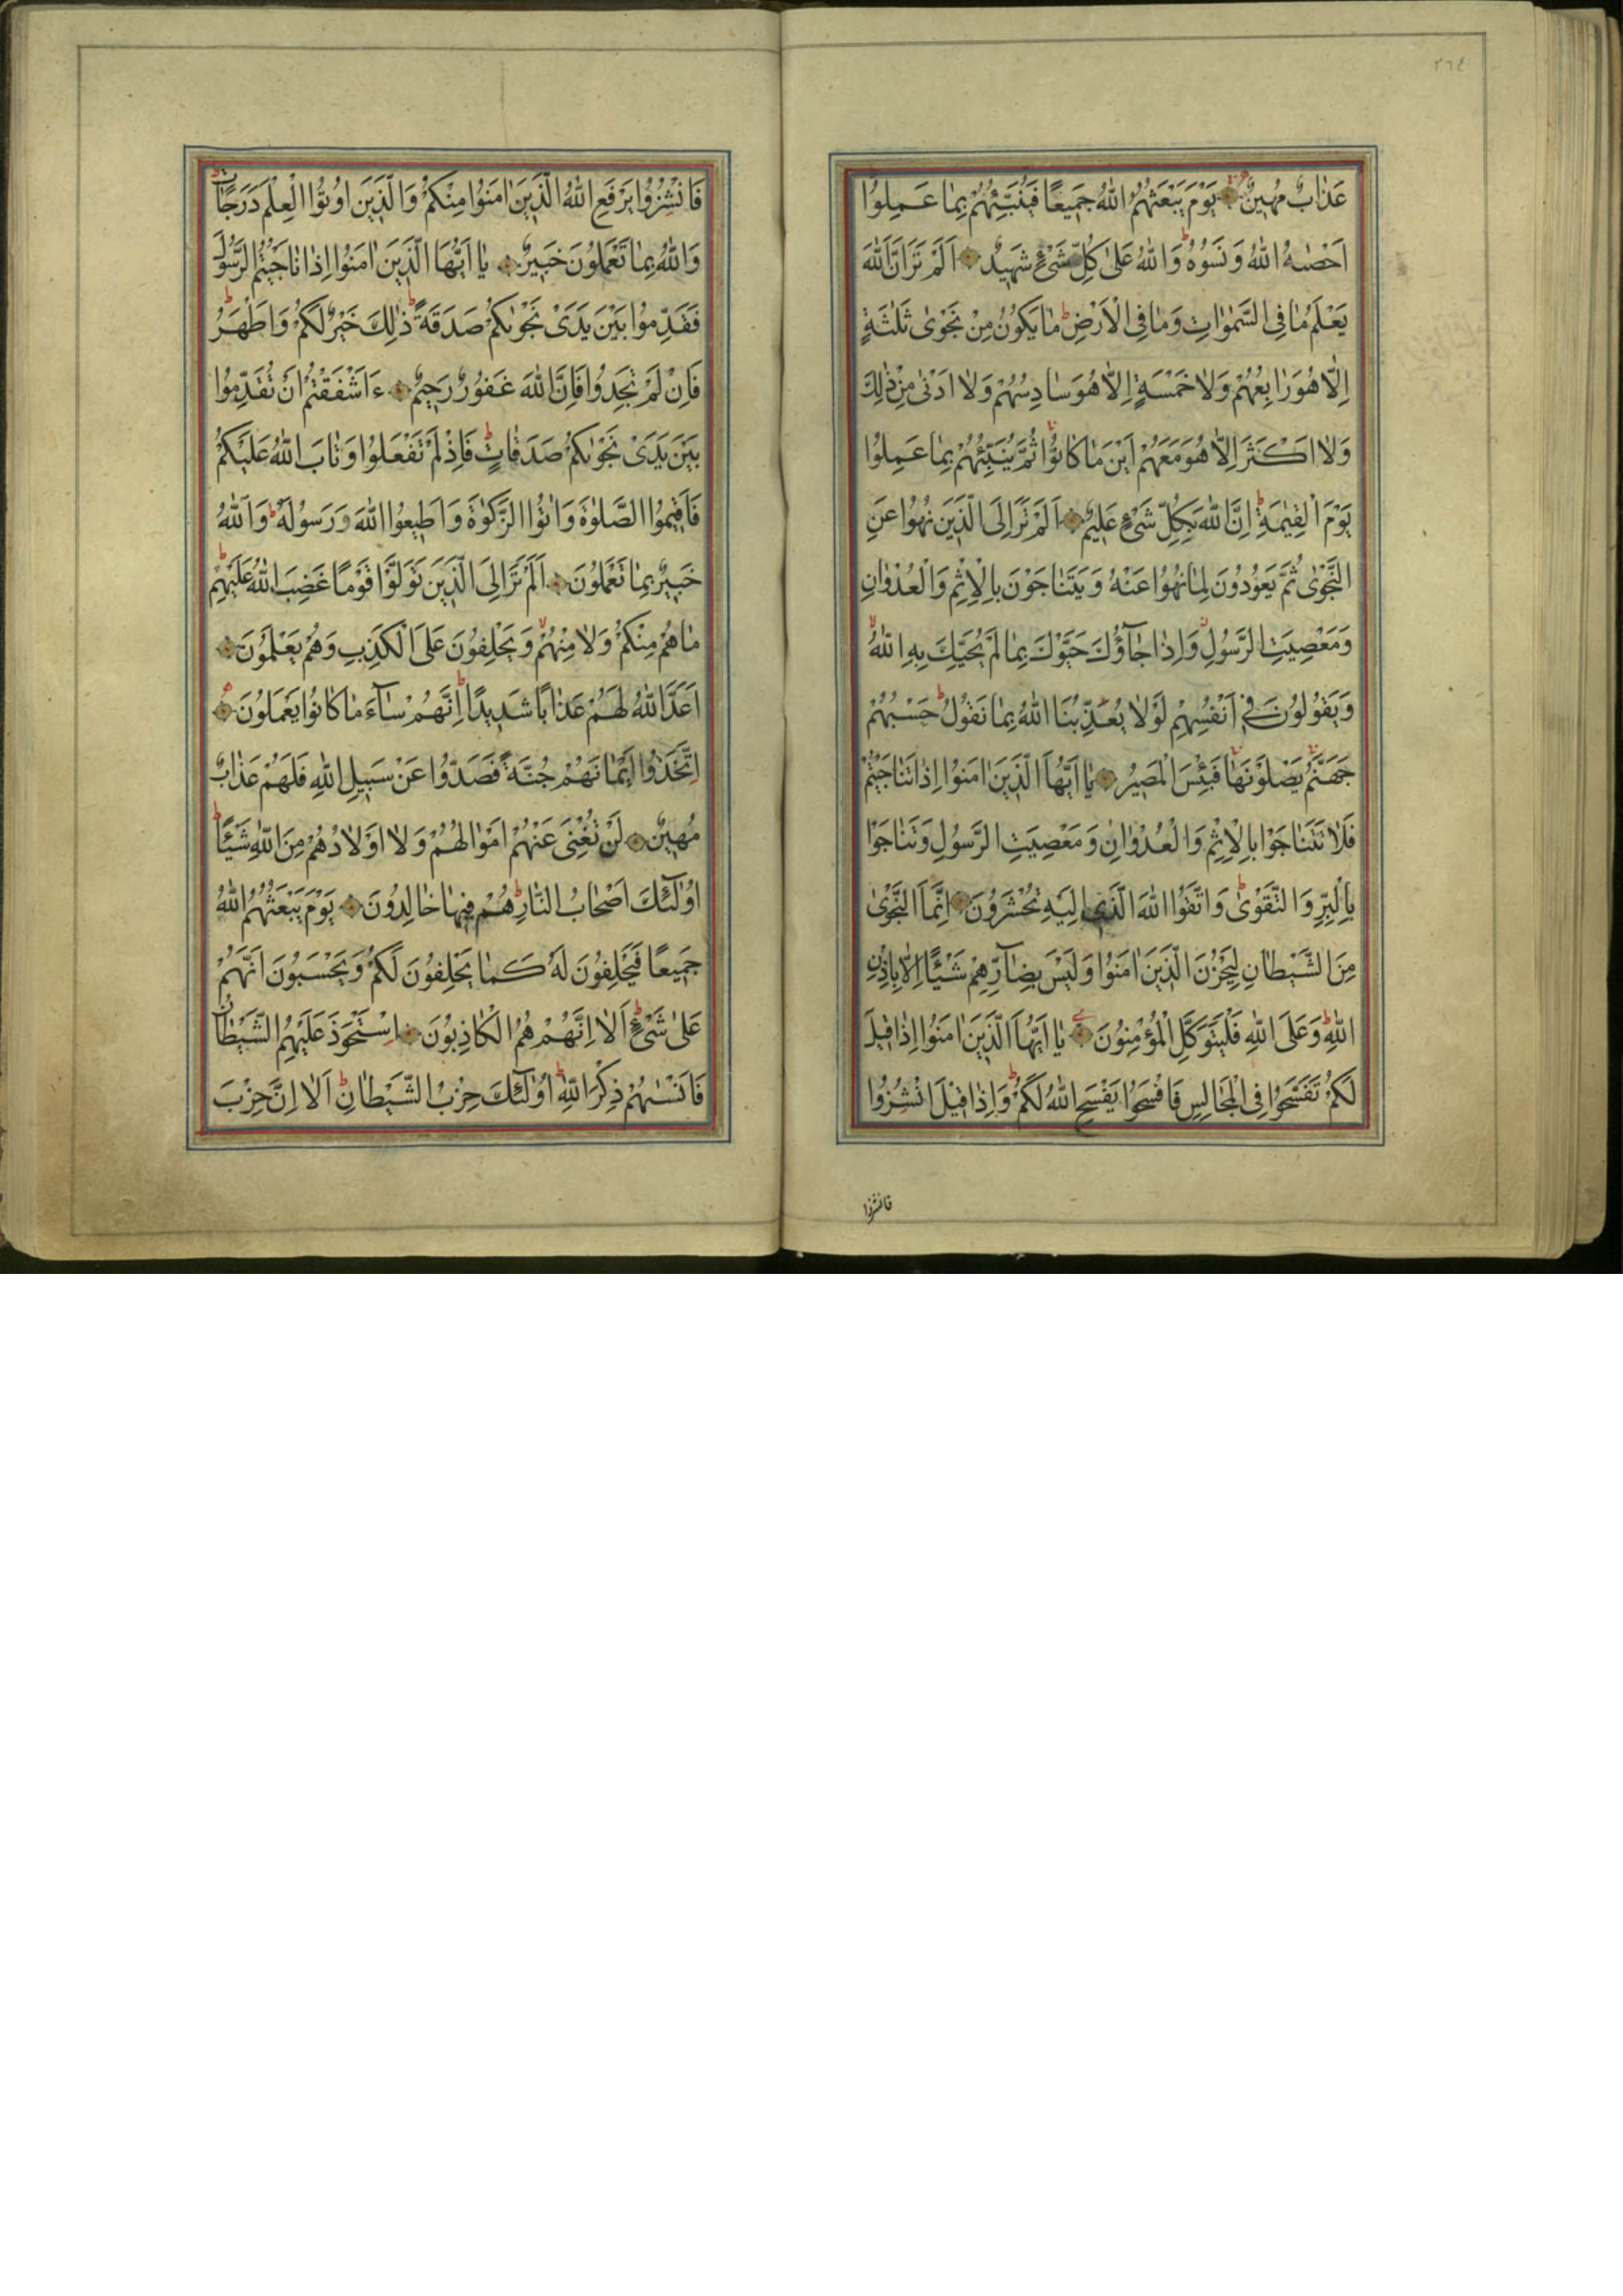 ٢٦٤
عَذَابٌ مُهِينٌ يَوْمَ يَبْعَثُهُمُ اللّٰهُ جَمِيعًا فَيُنَبِّئُهُمْ بِمَا عَمِلُوا
اَحْصٰيهُ اللّٰهُ وَنَسُوهُ ط وَاللّٰهُ عَلٰى كُلِّ شَىْءٍ شَهِيدٌ اَلَمْ تَرَ اَنَّ اللّٰهَ
يَعْلَمُ مَا فِى السَّمٰوَاتِ وَمَا فِى الْاَرْضِ ط مَا يَكُونُ مِنْ نَجْوٰى ثَلٰثَةٍ
اِلَّا هُوَ رَابِعُهُمْ وَلَا خَمْسَةٍ اِلَّا هُوَ سَادِسُهُمْ وَلَا اَدْنٰى مِنْ ذٰلِكَ
وَلَا اَكْثَرَ اِلَّا هُوَ مَعَهُمْ اَيْنَ مَا كَانُوا ثُمَّ يُنَبِّئُهُمْ بِمَا عَمِلُوا
يَوْمَ الْقِيٰمَةِ ط اِنَّ اللّٰهَ بِكُلِّ شَىْءٍ عَلِيمٌ اَلَمْ تَرَ اِلَى الَّذِينَ نُهُوا عَنِ
النَّجْوٰى ثُمَّ يَعُودُونَ لِمَا نُهُوا عَنْهُ وَيَتَنَاجَوْنَ بِالْاِثْمِ وَالْعُدْوَانِ
وَمَعْصِيَتِ الرَّسُولِ وَاِذَا جَآؤُكَ حَيَّوْكَ بِمَا لَمْ يُحَيِّكَ بِهِ اللّٰهُ
وَيَقُولُونَ فِى اَنْفُسِهِمْ لَوْلَا يُعَذِّبُنَا اللّٰهُ بِمَا نَقُولُ ط حَسْبُهُمْ
جَهَنَّمُ يَصْلَوْنَهَا فَبِئْسَ الْمَصِيرُ يَا اَيُّهَا الَّذِينَ اٰمَنُوا اِذَا تَنَاجَيْتُمْ
فَلَا تَتَنَاجَوْا بِالْاِثْمِ وَالْعُدْوَانِ وَمَعْصِيَتِ الرَّسُولِ وَتَنَاجَوْا
بِالْبِرِّ وَالتَّقْوٰى ط وَاتَّقُوا اللّٰهَ الَّذِى اِلَيْهِ تُحْشَرُونَ اِنَّمَا النَّجْوٰى
مِنَ الشَّيْطَانِ لِيَحْزُنَ الَّذِينَ اٰمَنُوا وَلَيْسَ بِضَآرِّهِمْ شَيْئًا اِلَّا بِاِذْنِ
اللّٰهِ ط وَعَلَى اللّٰهِ فَلْيَتَوَكَّلِ الْمُؤْمِنُونَ يَا اَيُّهَا الَّذِينَ اٰمَنُوا اِذَا قِيلَ
لَكُمْ تَفَسَّحُوا فِى الْمَجَالِسِ فَافْسَحُوا يَفْسَحِ اللّٰهُ لَكُمْ ط وَاِذَا قِيلَ انْشُزُوا
فانشزوا
فَانْشُزُوا يَرْفَعِ اللّٰهُ الَّذِينَ اٰمَنُوا مِنْكُمْ وَالَّذِينَ اُوتُوا الْعِلْمَ دَرَجَاتٍ ط
وَاللّٰهُ بِمَا تَعْمَلُونَ خَبِيرٌ يَا اَيُّهَا الَّذِينَ اٰمَنُوا اِذَا نَاجَيْتُمُ الرَّسُولَ
فَقَدِّمُوا بَيْنَ يَدَىْ نَجْوٰيكُمْ صَدَقَةً ط ذٰلِكَ خَيْرٌ لَكُمْ وَاَطْهَرُ ط
فَاِنْ لَمْ تَجِدُوا فَاِنَّ اللّٰهَ غَفُورٌ رَحِيمٌ ءَاَشْفَقْتُمْ اَنْ تُقَدِّمُوا
بَيْنَ يَدَىْ نَجْوٰيكُمْ صَدَقَاتٍ ط فَاِذْ لَمْ تَفْعَلُوا وَتَابَ اللّٰهُ عَلَيْكُمْ
فَاَقِيمُوا الصَّلٰوةَ وَاٰتُوا الزَّكٰوةَ وَاَطِيعُوا اللّٰهَ وَرَسُولَهُ ط وَاللّٰهُ
خَبِيرٌ بِمَا تَعْمَلُونَ اَلَمْ تَرَ اِلَى الَّذِينَ تَوَلَّوْا قَوْمًا غَضِبَ اللّٰهُ عَلَيْهِمْ ط
مَا هُمْ مِنْكُمْ وَلَا مِنْهُمْ وَيَحْلِفُونَ عَلَى الْكَذِبِ وَهُمْ يَعْلَمُونَ
اَعَدَّ اللّٰهُ لَهُمْ عَذَابًا شَدِيدًا ط اِنَّهُمْ سَآءَ مَا كَانُوا يَعْمَلُونَ
اِتَّخَذُوا اَيْمَانَهُمْ جُنَّةً فَصَدُّوا عَنْ سَبِيلِ اللّٰهِ فَلَهُمْ عَذَابٌ
مُهِينٌ لَنْ تُغْنِىَ عَنْهُمْ اَمْوَالُهُمْ وَلَا اَوْلَادُهُمْ مِنَ اللّٰهِ شَيْئًا ط
اُولٰٓئِكَ اَصْحَابُ النَّارِ ط هُمْ فِيهَا خَالِدُونَ يَوْمَ يَبْعَثُهُمُ اللّٰهُ
جَمِيعًا فَيَحْلِفُونَ لَهُ كَمَا يَحْلِفُونَ لَكُمْ وَيَحْسَبُونَ اَنَّهُمْ
عَلٰى شَىْءٍ ط اَلَا اِنَّهُمْ هُمُ الْكَاذِبُونَ اِسْتَحْوَذَ عَلَيْهِمُ الشَّيْطَانُ
فَاَنْسٰيهُمْ ذِكْرَ اللّٰهِ ط اُولٰٓئِكَ حِزْبُ الشَّيْطَانِ ط اَلَا اِنَّ حِزْبَ